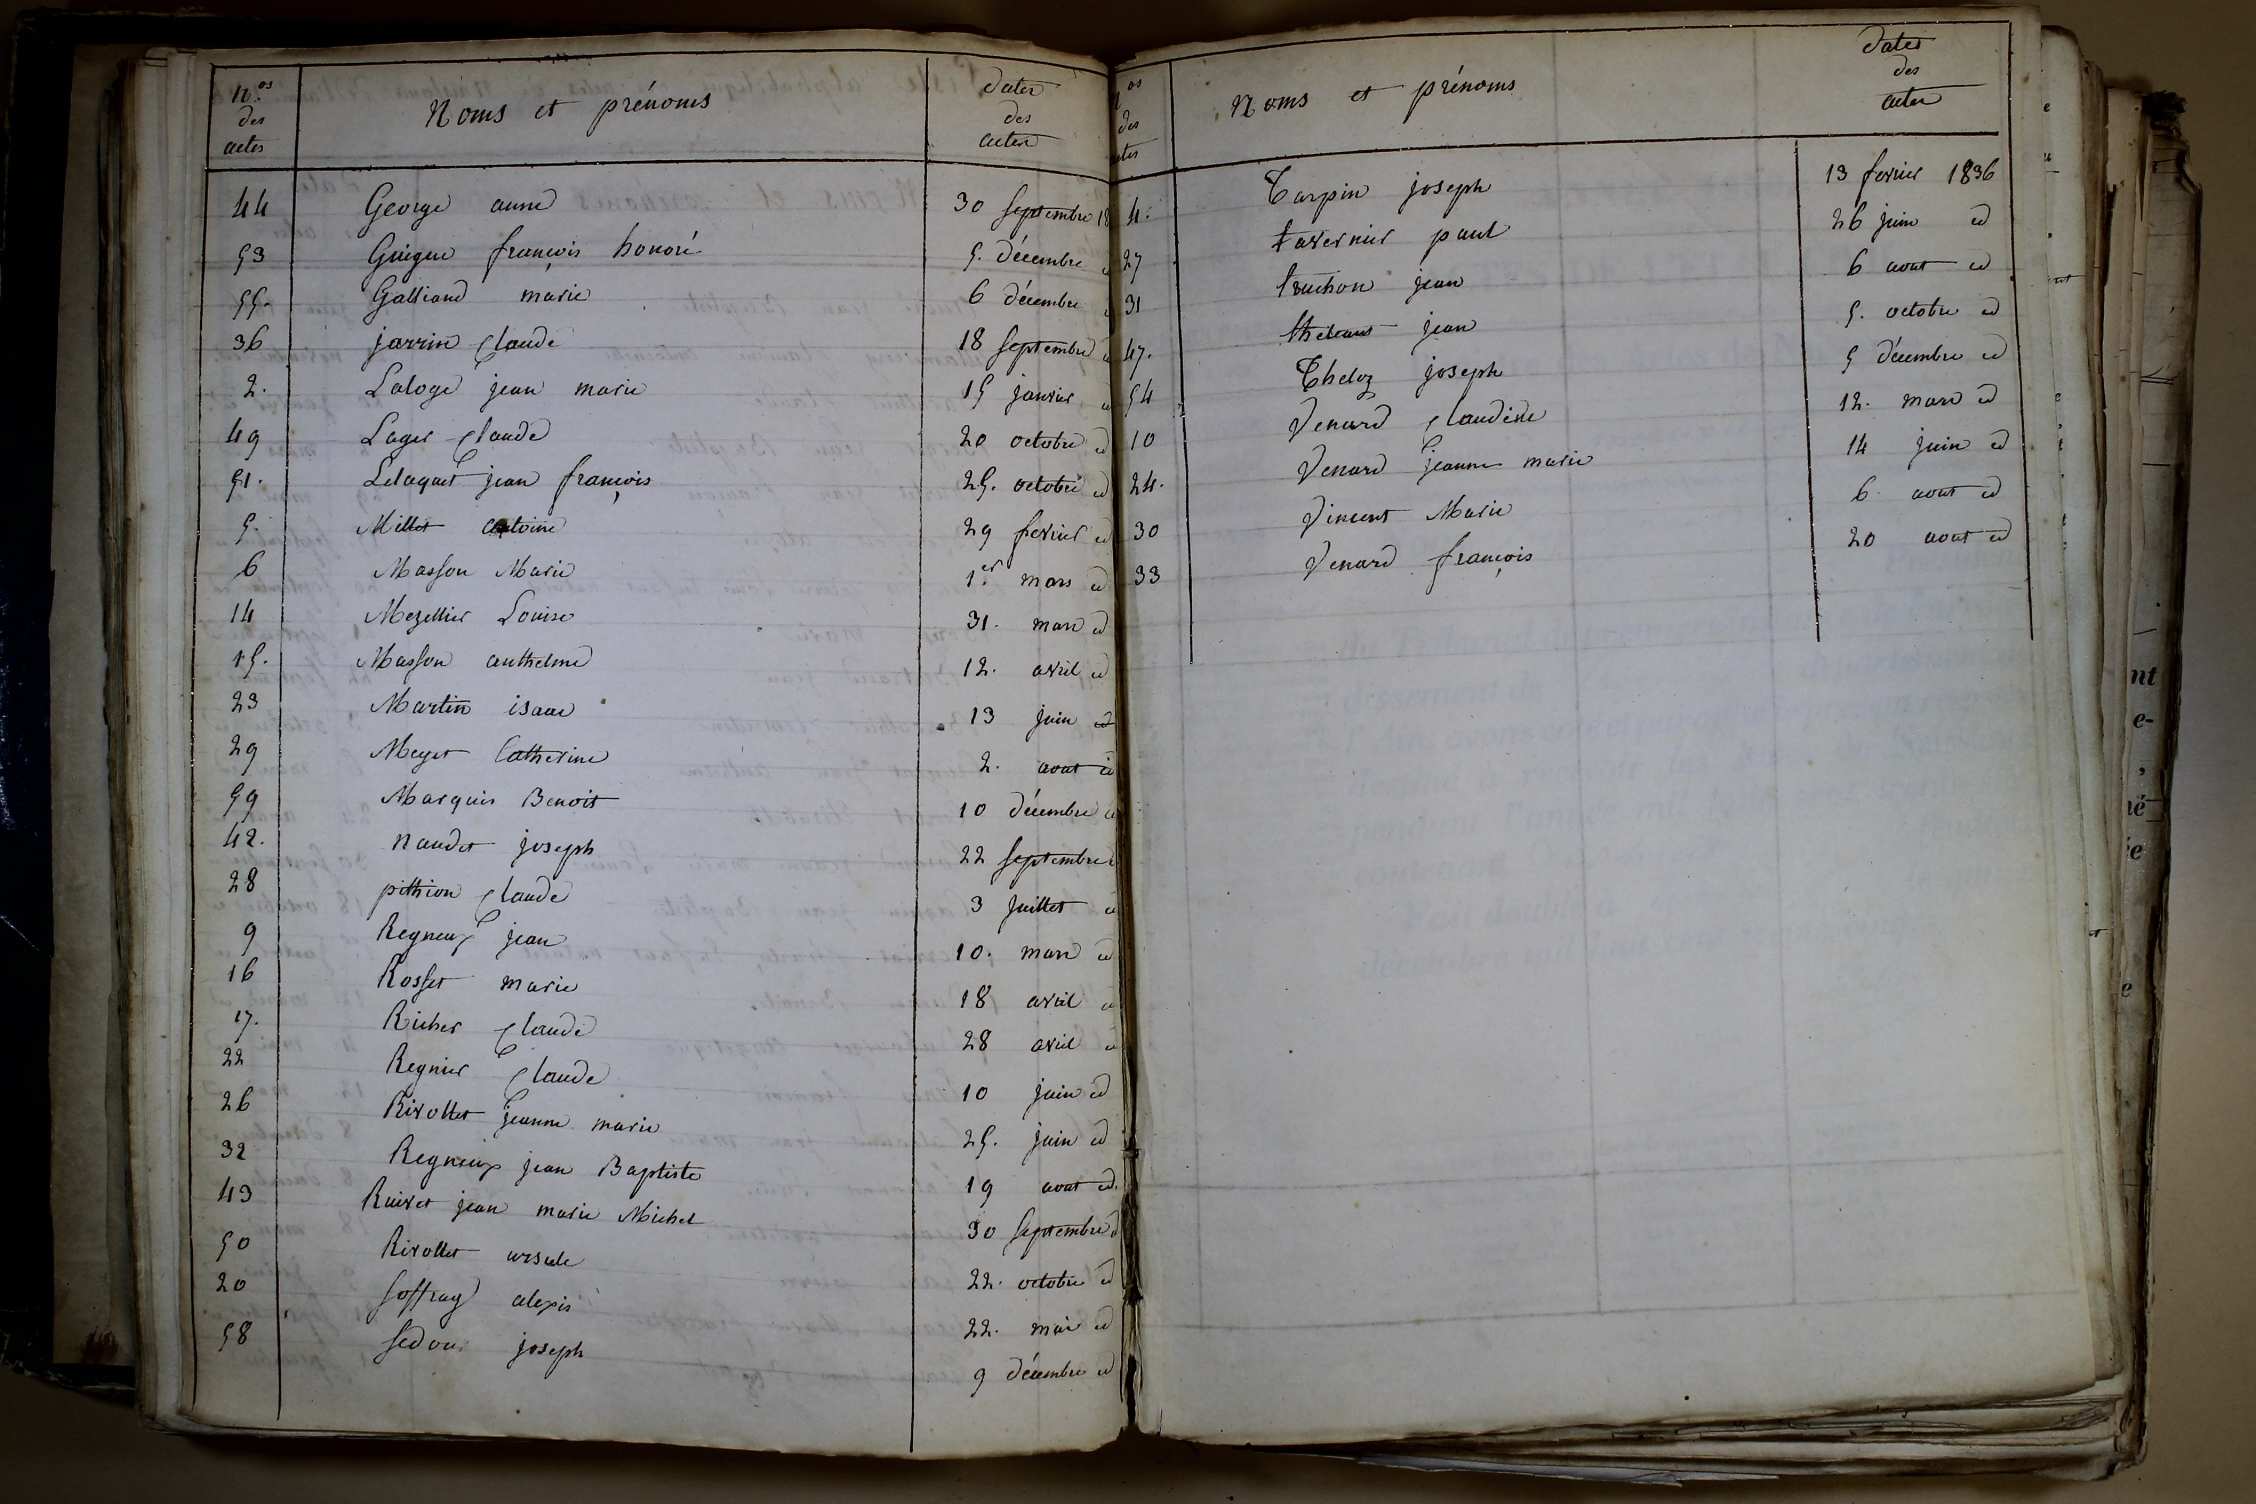 N.os des actes Noms et prénoms dates des actes
44 George anne 30 septembre 18
53 Guigue françois honoré 5. décembre id
55. Galliand marie 6 décembre
36 jarrin Claude 18 septembre id
2. Laloge jean marie 15 janvier id
49 Lager Claude 20 octobre id
51. Lelaquet jean françois 25. octobre id
5. Millet antoine 29 fevrier id
6 Masson Marie 1.er mars id
14 Mezellier Louise 31. mars id
15. Masson anthelme 12. avril id
23 Martin isaac 13 juin id
29 Meyet Catherine 2. aout id
59 Marquis Benoit 10 décembre id
42. naudet joseph 22 septembre
28 pithion Claude 3 juillet id
9 Regneux jean 10. mars id
16 Rosset marie 18 avril id
17. Richer Claude 28 avril id
22 Regnier Claude 10 juin id
26 Rivollet jeanne marie 25. juin id
32 Regneux jean Baptiste 19 aout id.
43 Ruivet jean marie Michel 30 septembre id
50 Rivollet ursule 22. octobre id
20 Soffray alexis 22. mai id
58 Sedoux joseph 9 décembre id
os des actes Noms et prénoms dates des actes
4. Tarpin joseph 13 fevrier 1836
27 tavernier paul 26 juin id
31 truchon jean 6 aout id
47. thevant jean 5. octobre id
54 Theloz joseph 5 décembre id
10 Venard Claudine 12. mars id
24. Venard jeanne marie 14 juin id
30 Vincent Marie 6. aout id
33 Venard françois 20 aout id